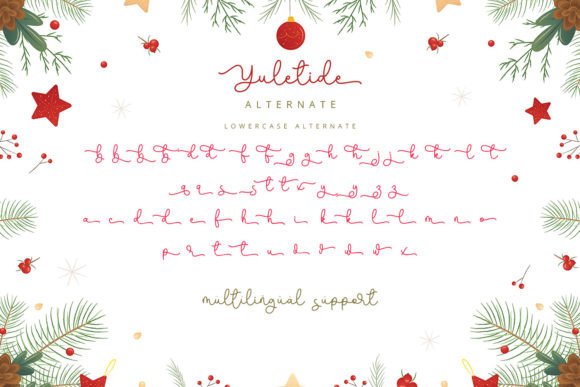 Yuletide
ALTERNATE
LOWERCASE ALTERNATE
b b b d d f f g h h j k k l t
q q s s t t x y y z z
a c d d e f h h i k k l t m n o
p r t t u v v w x
multilingual support